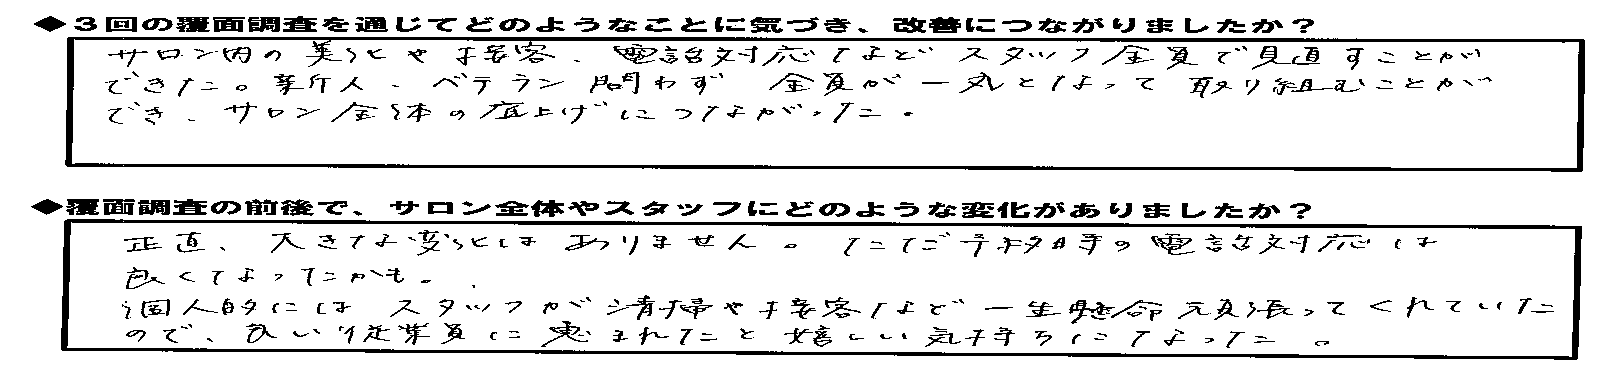 ◆３回の覆面調査を通じてどのようなことに気づき、改善につながりましたか？
サロン内の美化や接客、電話対応などスタッフ全員で見直すことが
できた。新人、ベテラン問わず 全員が一丸となって取り組むことが
でき、サロン全体の底上げにつながった。
◆覆面調査の前後で、サロン全体やスタッフにどのような変化がありましたか？
正直、大きな変化はありません。ただ若手の電話対応は
良くなったかも。
個人的にはスタッフが清掃や接客など一生懸命頑張ってくれていた
ので、良い従業員に恵まれたこと嬉しい気持ちになった。